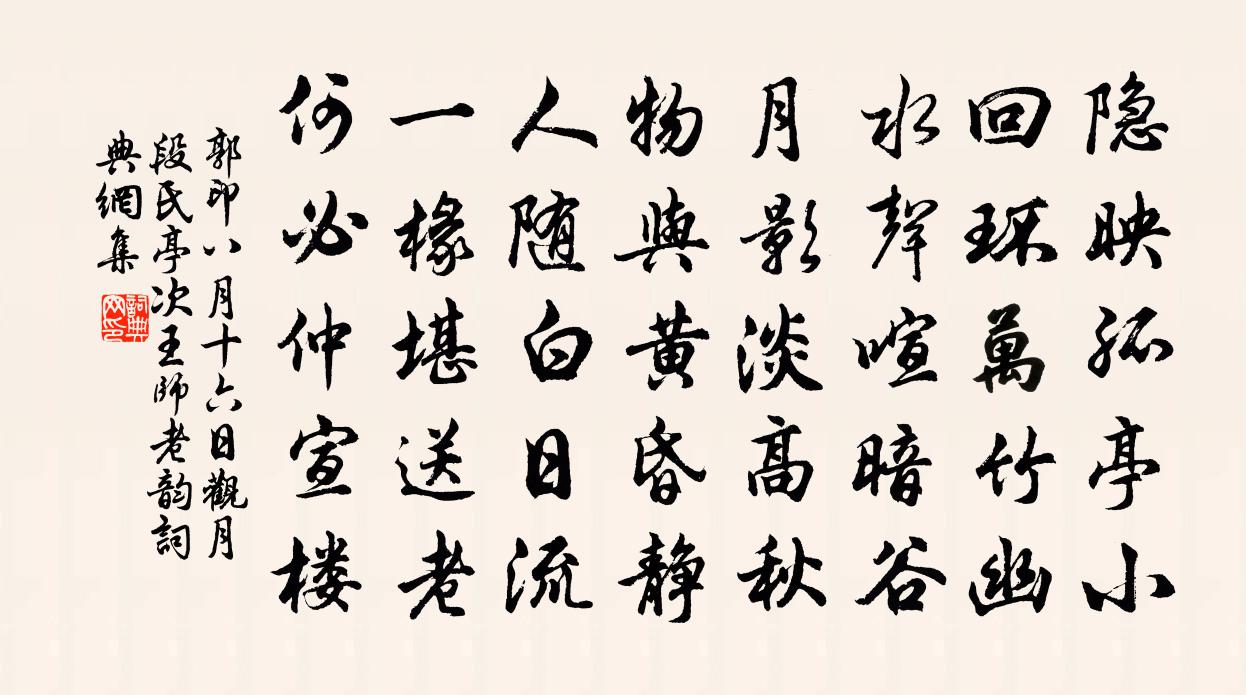 隐映孤亭小
回环萬竹幽
水聲喧暗谷
月影淡高秋
物與黄昏静
人随白日流
一椽堪送老
何必仲宣楼
郭印八月十六日觀月
段氏亭次王師老韵詞
典網集
詞典网印